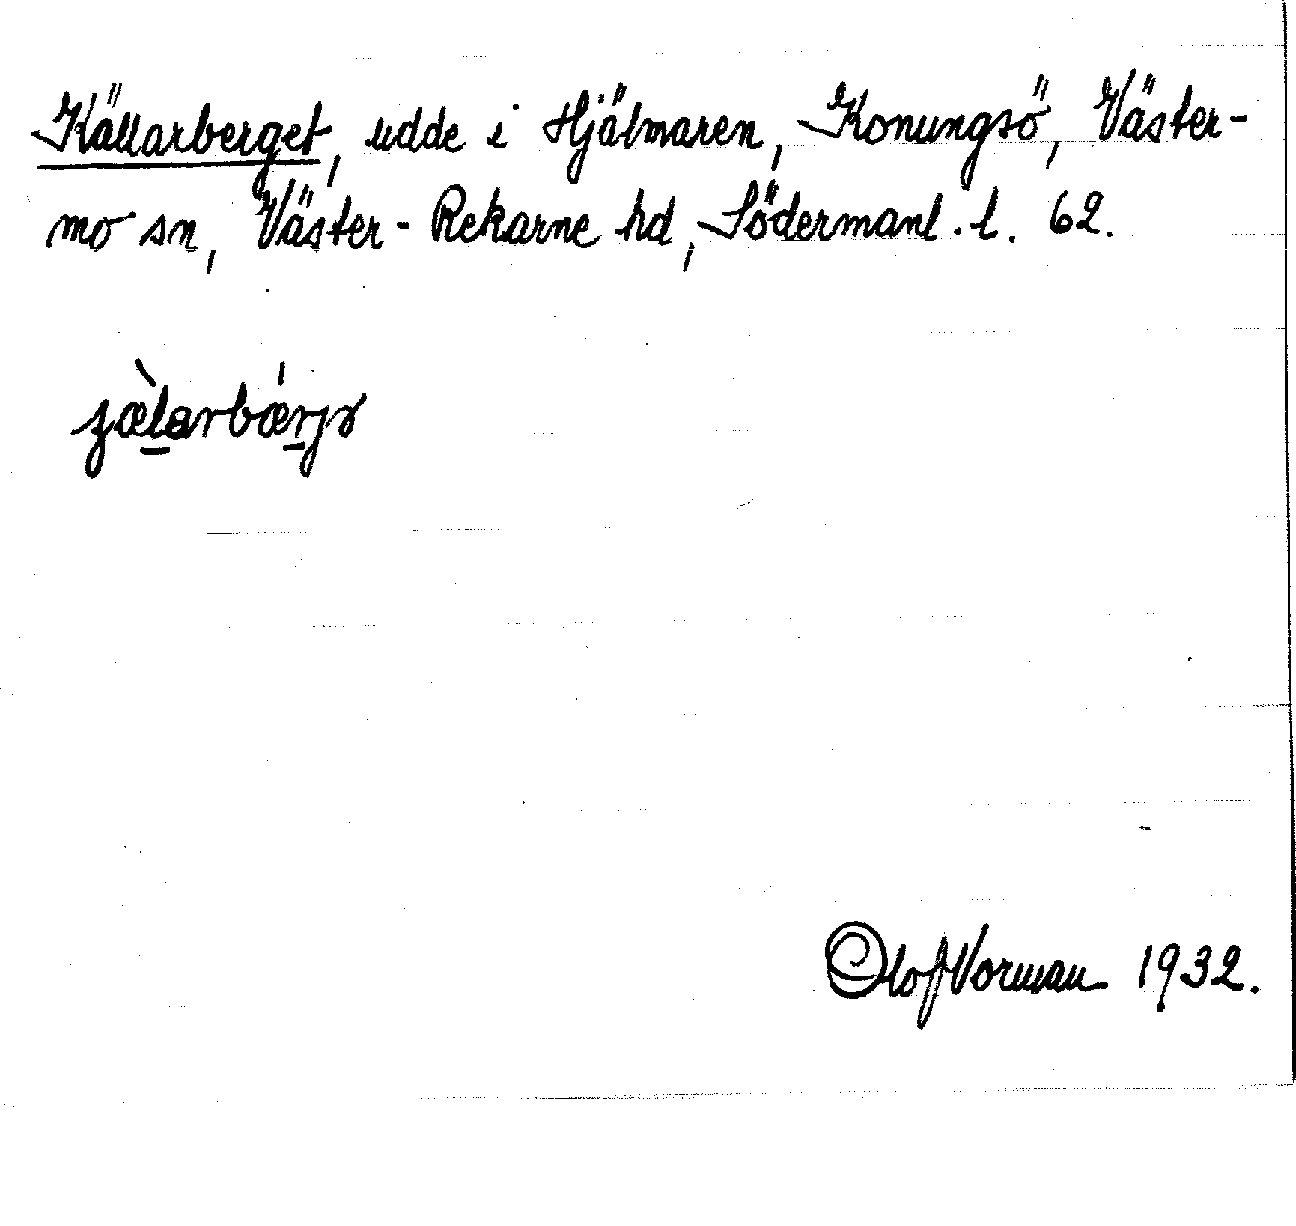 Källarberget, udde i Hjälmaren, Konungsö, Väster-
mo sn, Väster-Rekarne hd, Södermanl. l. 62.
Olof Vorman 1932.